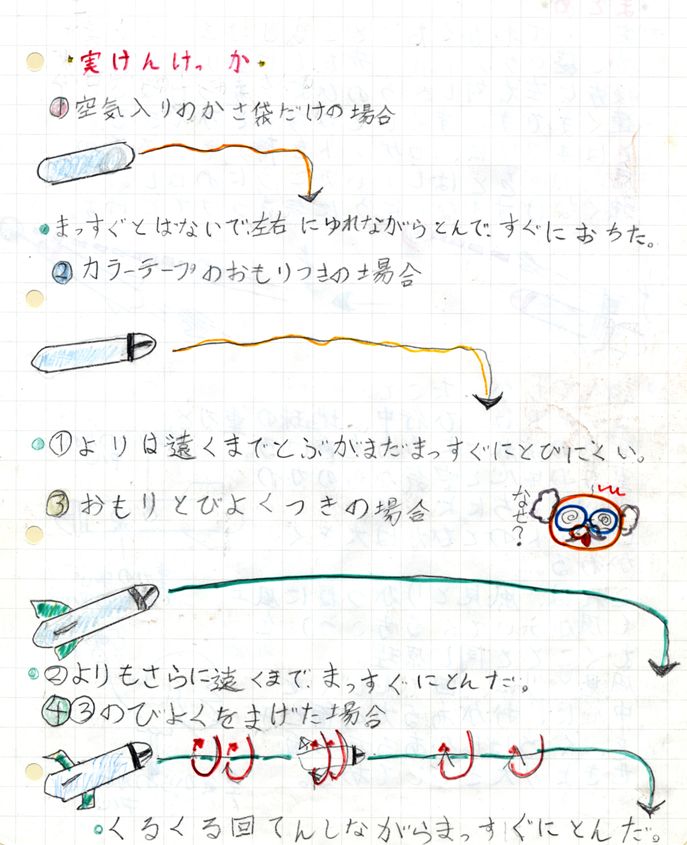 ・実けんけっか・
①空気入りわかさ袋だけの場合
・まっすぐとばないで左右にゆれながらとんで、すぐにおちた。
②カラーテープのおもりつきの場合
・①よりは遠くまでとぶがまだまっすぐにとびにくい。
③おもりとびよくつきの場合
なぜ?
・②よりもさらに遠くまで、まっすぐにとんだ。
④③のびよくをまげた場合
・くるくる回てんしながらまっすぐにとんだ。